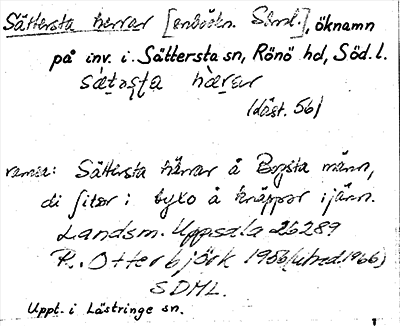 Sättersta herrar [enböctn. Skrd.], öknamn
på inv. i. Sättersta sn, Rönö hd, Söd. l.
sätaṣṭa härar
(läst. 56)
ramsa: Sättersta härrar å Bogsta männ,
di sitor i byxo å knäppor ijänn.
Landsm. Uppsala 26289
R. Otterbjörk 1956 (utred. 1966)
SDML.
Uppt. i Lästringe sn.